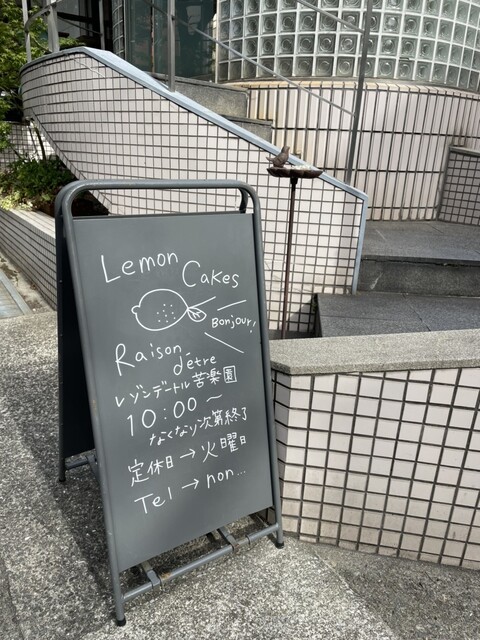 Lemon
Cakes
Bonjour!
Raison
d'être
レゾンデートル 苦楽園
10:00〜
なくなり次第終了
定休日→火曜日
Tel→non...